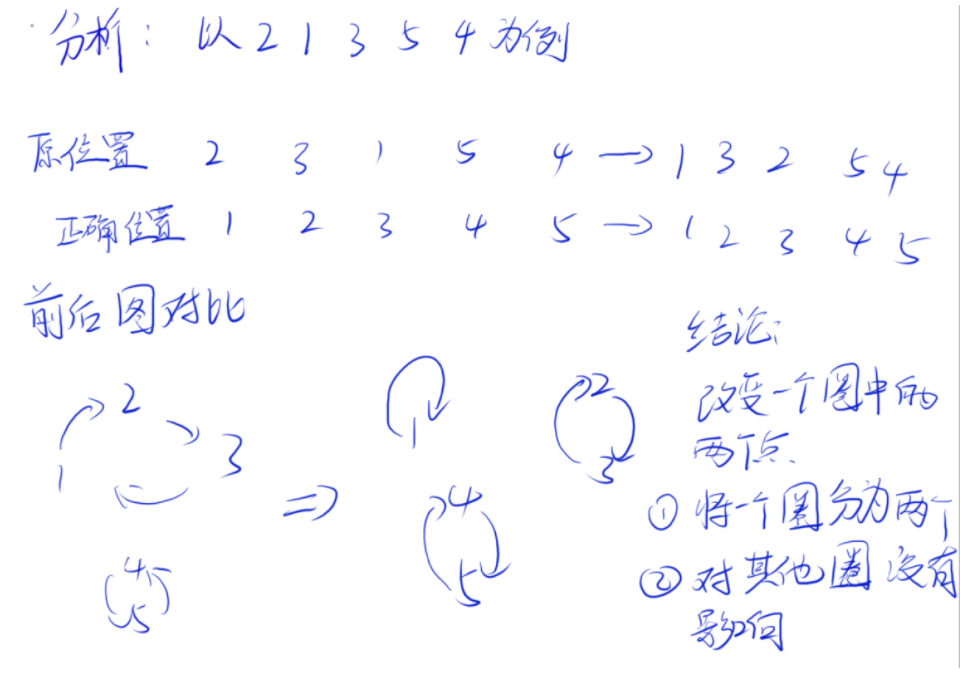 分析：以 2 1 3 5 4 为例
原位置 2 3 1 5 4 → 1 3 2 5 4
正确位置 1 2 3 4 5 → 1 2 3 4 5
前后图对比
1 2 3
4 5
⇒
1
2 3
4 5
结论：
改变一个圈中的
两个点.
① 将一个圈分为两个
② 对其他圈没有
影响